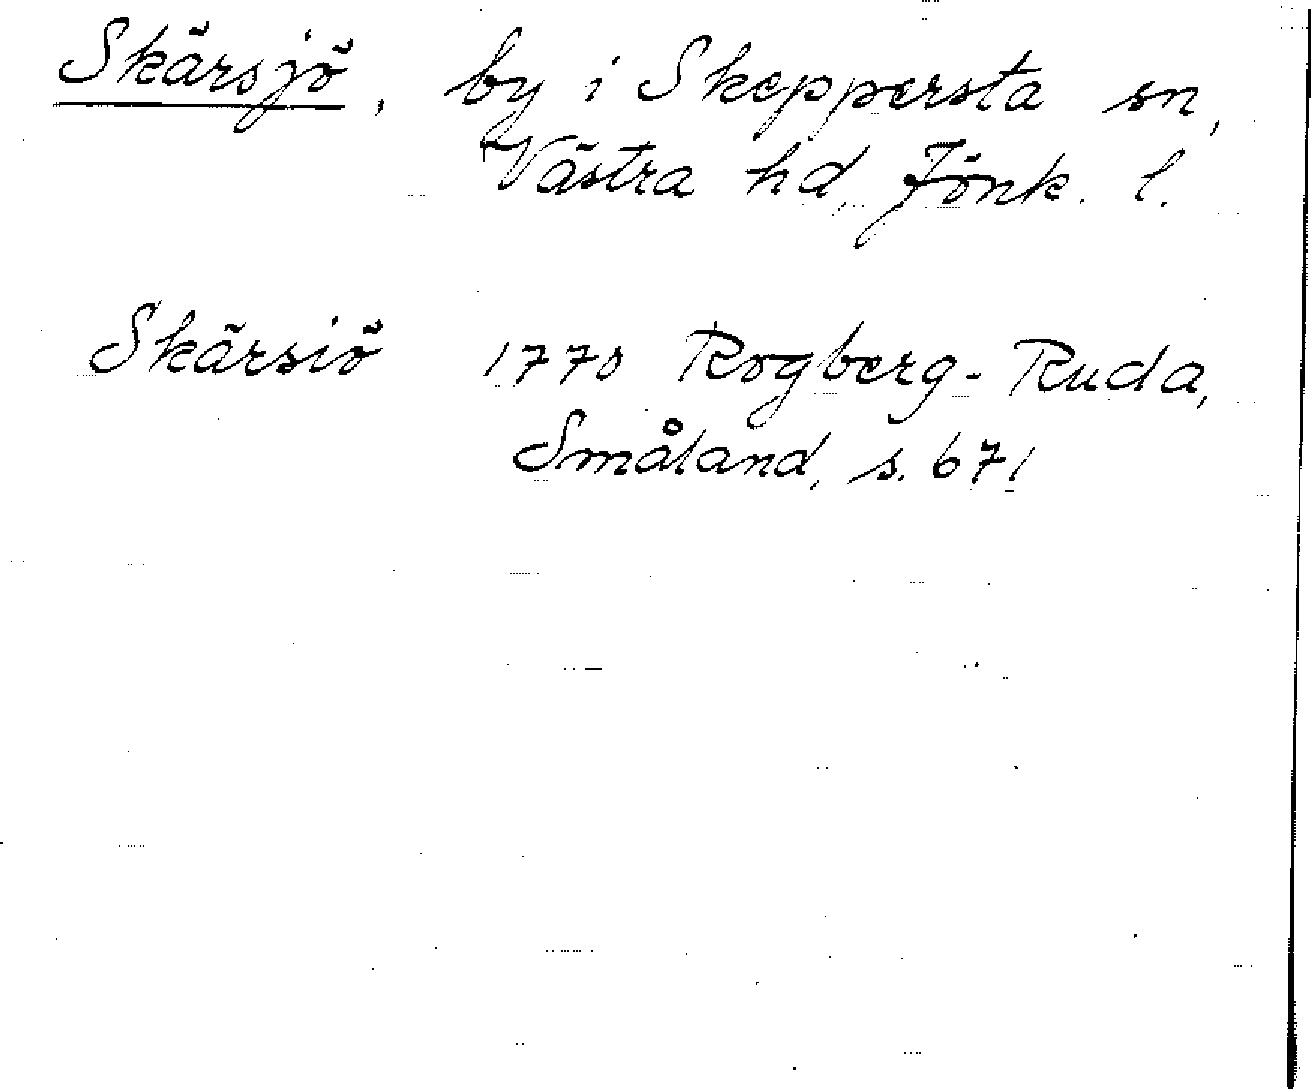 Skärsjö, by i Skeppersta sn,
Västra hd, Jönk. l.
Skärsiö 1770 Rogberg-Ruda,
Småland, s. 671